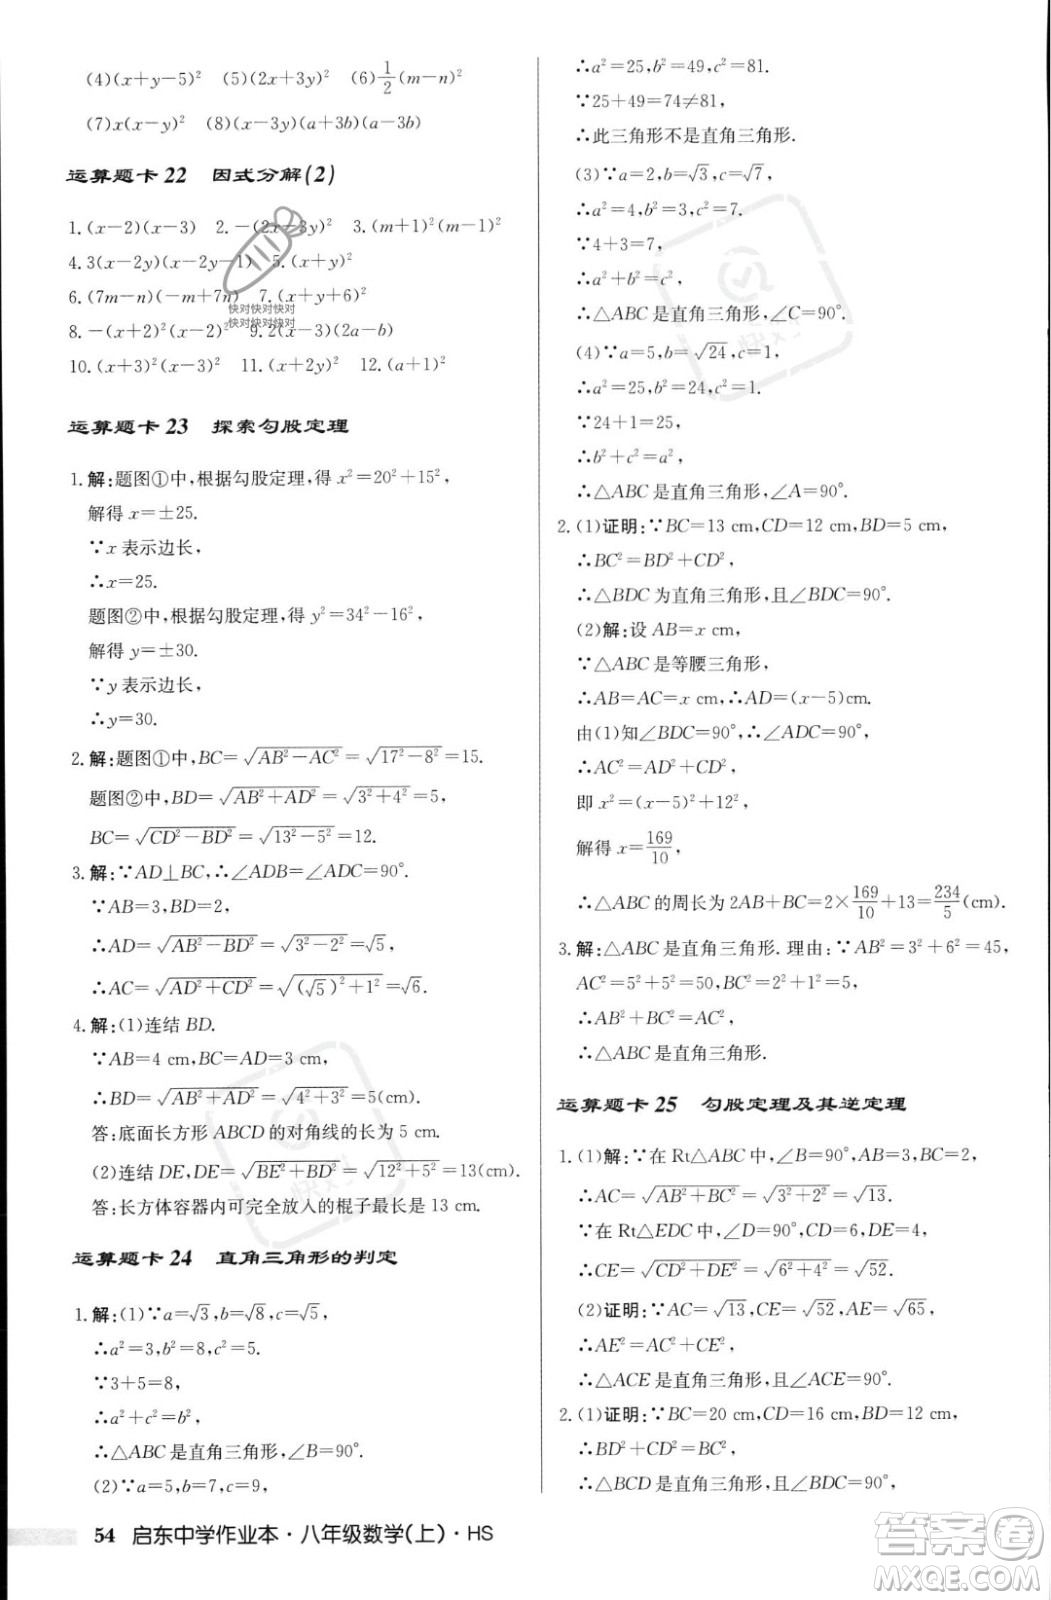 (4)(x+y-5)² (5)(2x+3y)² (6)1/2(m-n)²
(7)x(x-y)² (8)(x-3y)(a+3b)(a-3b)
运算题卡 22 因式分解(2)
1.(x-2)(x-3) 2.-(2x-3y)² 3.(m+1)²(m-1)²
4.3(x-2y)(x-2y-1) 5.(x+y-1)²
6.(7m-n)(-m+7n) 7.(x+y+6)²
8.-(x+2)²(x-2)² 9.2(x-3)(2a-b)
10.(x+3)²(x-3)² 11.(x+y)⁴ 12.(a+1)²
运算题卡 23 探索勾股定理
1.解:题图①中,根据勾股定理,得 x²=20²+15²,
解得 x=±25.
∵x 表示边长,
∴x=25.
题图②中,根据勾股定理,得 y²=34²-16²,
解得 y=±30.
∵y 表示边长,
∴y=30.
2.解:题图①中,BC=√(AB²-AC²)=√(17²-8²)=15.
题图②中,BD=√(AB²+AD²)=√(3²+4²)=5,
BC=√(CD²-BD²)=√(13²-5²)=12.
3.解:∵AD⊥BC,∴∠ADB=∠ADC=90°.
∵AB=3,BD=2,
∴AD=√(AB²-BD²)=√(3²-2²)=√5,
∴AC=√(AD²+CD²)=√((√5)²+1²)=√6.
4.解:(1)连结 BD.
∵AB=4 cm,BC=AD=3 cm,
∴BD=√(AB²+AD²)=√(4²+3²)=5(cm).
答:底面长方形 ABCD 的对角线的长为 5 cm.
(2)连结 DE,DE=√(BE²+BD²)=√(12²+5²)=13(cm).
答:长方体容器内可完全放入的棍子最长是 13 cm.
运算题卡 24 直角三角形的判定
1.解:(1)∵a=√3,b=√8,c=√5,
∴a²=3,b²=8,c²=5.
∵3+5=8,
∴a²+c²=b²,
∴△ABC 是直角三角形,∠B=90°.
(2)∵a=5,b=7,c=9,
∴a²=25,b²=49,c²=81.
∵25+49=74≠81,
∴此三角形不是直角三角形.
(3)∵a=2,b=√3,c=√7,
∴a²=4,b²=3,c²=7.
∵4+3=7,
∴a²+b²=c²,
∴△ABC 是直角三角形,∠C=90°.
(4)∵a=5,b=√24,c=1,
∴a²=25,b²=24,c²=1.
∵24+1=25,
∴b²+c²=a²,
∴△ABC 是直角三角形,∠A=90°.
2.(1)证明:∵BC=13 cm,CD=12 cm,BD=5 cm,
∴BC²=BD²+CD²,
∴△BDC 为直角三角形,且∠BDC=90°.
(2)解:设 AB=x cm,
∵△ABC 是等腰三角形,
∴AB=AC=x cm,∴AD=(x-5)cm.
由(1)知∠BDC=90°,∴∠ADC=90°,
∴AC²=AD²+CD²,
即 x²=(x-5)²+12²,
解得 x=169/10,
∴△ABC 的周长为 2AB+BC=2×169/10+13=234/5(cm).
3.解:△ABC 是直角三角形. 理由:∵AB²=3²+6²=45,
AC²=5²+5²=50,BC²=1²+2²=5,
∴AB²+BC²=AC²,
∴△ABC 是直角三角形.
运算题卡 25 勾股定理及其逆定理
1.(1)解:∵在 Rt△ABC 中,∠B=90°,AB=3,BC=2,
∴AC=√(AB²+BC²)=√(3²+2²)=√13.
∵在 Rt△EDC 中,∠D=90°,CD=6,DE=4,
∴CE=√(CD²+DE²)=√(6²+4²)=√52.
(2)证明:∵AC=√13,CE=√52,AE=√65,
∴AE²=AC²+CE²,
∴△ACE 是直角三角形,∠ACE=90°.
2.(1)证明:∵BC=20 cm,CD=16 cm,BD=12 cm,
∴BD²+CD²=BC²,
∴△BCD 是直角三角形,且∠BDC=90°.
54 启东中学作业本·八年级数学(上)·HS
快对快对快对
快对快对快对
答案圈
MXQE.COM